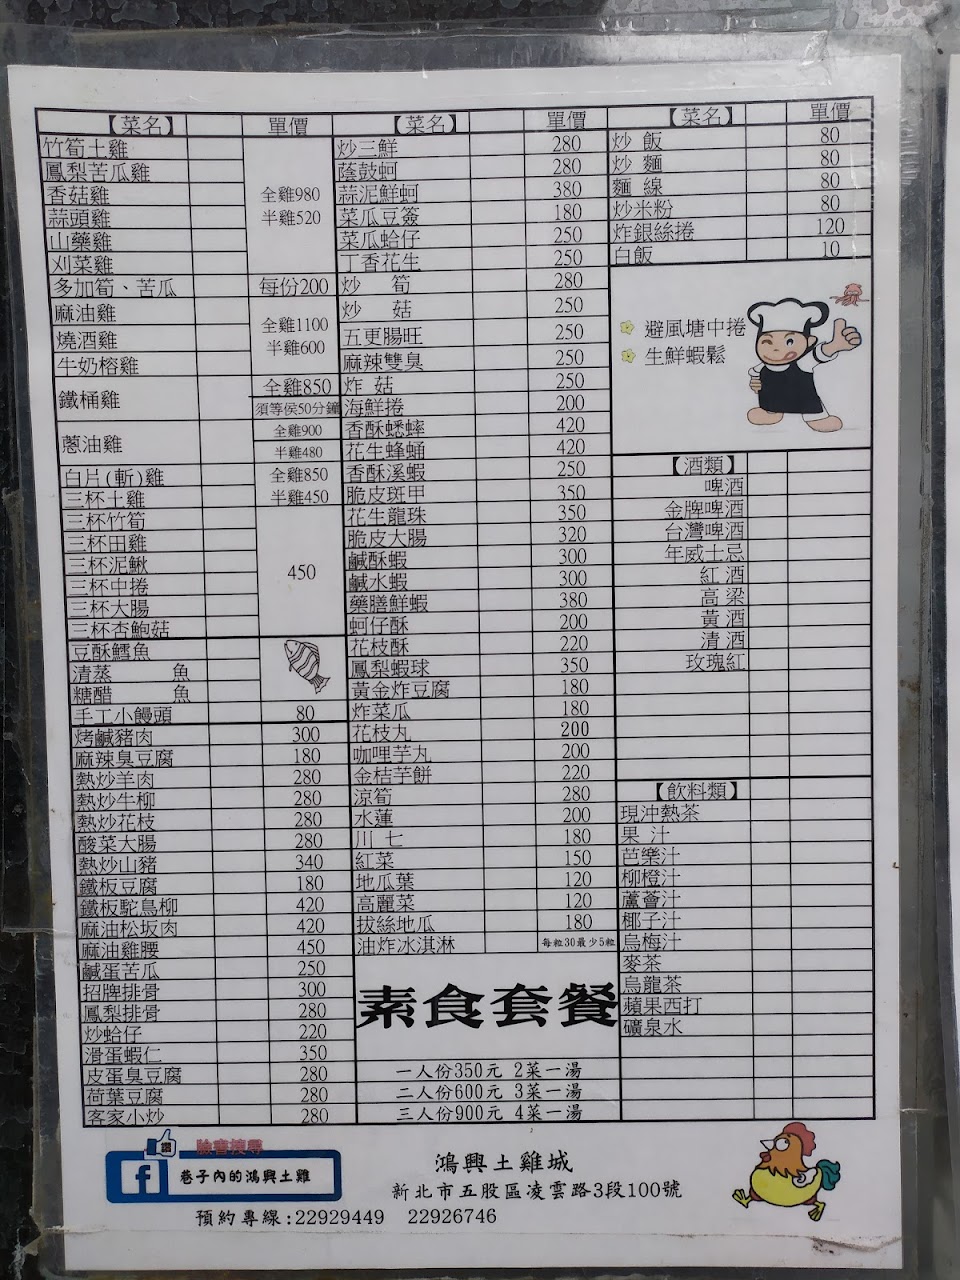 【菜名】 單價
竹筍土雞
鳳梨苦瓜雞
香菇雞
蒜頭雞
山藥雞
刈菜雞
全雞980
半雞520
多加筍、苦瓜 每份200
麻油雞
燒酒雞
牛奶榕雞
全雞1100
半雞600
鐵桶雞
全雞850
須等侯50分鐘
蔥油雞
全雞900
半雞480
白片(斬)雞
三杯土雞
全雞850
半雞450
三杯竹筍
三杯田雞
三杯泥鰍
三杯中捲
三杯大腸
三杯杏鮑菇
450
豆酥鱈魚
清蒸 魚
糖醋 魚
手工小饅頭 80
烤鹹豬肉 300
麻辣臭豆腐 180
熱炒羊肉 280
熱炒牛柳 280
熱炒花枝 280
酸菜大腸 280
熱炒山豬 340
鐵板豆腐 180
鐵板駝鳥柳 420
麻油松坂肉 420
麻油雞腰 450
鹹蛋苦瓜 250
招牌排骨 300
鳳梨排骨 280
炒蛤仔 220
滑蛋蝦仁 350
皮蛋臭豆腐 280
荷葉豆腐 280
客家小炒 280
【菜名】 單價
炒三鮮 280
蔭鼓蚵 280
蒜泥鮮蚵 380
菜瓜豆簽 180
菜瓜蛤仔 250
丁香花生 250
炒 筍 280
炒 菇 250
五更腸旺 250
麻辣雙臭 250
炸 菇 250
海鮮捲 200
香酥蟋蟀 420
花生蜂蛹 420
香酥溪蝦 250
脆皮斑甲 350
花生龍珠 350
脆皮大腸 320
鹹酥蝦 300
鹹水蝦 300
藥膳鮮蝦 380
蚵仔酥 200
花枝酥 220
鳳梨蝦球 350
黃金炸豆腐 180
炸菜瓜 180
花枝丸 200
咖哩芋丸 200
金桔芋餅 220
涼筍 280
水蓮 200
川 七 180
紅菜 150
地瓜葉 120
高麗菜 120
拔絲地瓜 180
油炸冰淇淋 每粒30最少5粒
素食套餐
一人份350元 2菜一湯
二人份600元 3菜一湯
三人份900元 4菜一湯
【菜名】 單價
炒 飯 80
炒 麵 80
麵 線 80
炒米粉 80
炸銀絲捲 120
白飯 10
避風塘中捲
生鮮蝦鬆
【酒類】
啤酒
金牌啤酒
台灣啤酒
年威士忌
紅 酒
高 梁
黃 酒
清 酒
玫瑰紅
【飲料類】
現沖熱茶
果 汁
芭樂汁
柳橙汁
蘆薈汁
椰子汁
烏梅汁
麥茶
烏龍茶
蘋果西打
礦泉水
讚 臉書搜尋
f 巷子內的鴻興土雞
鴻興土雞城
新北市五股區凌雲路3段100號
預約專線:22929449 22926746